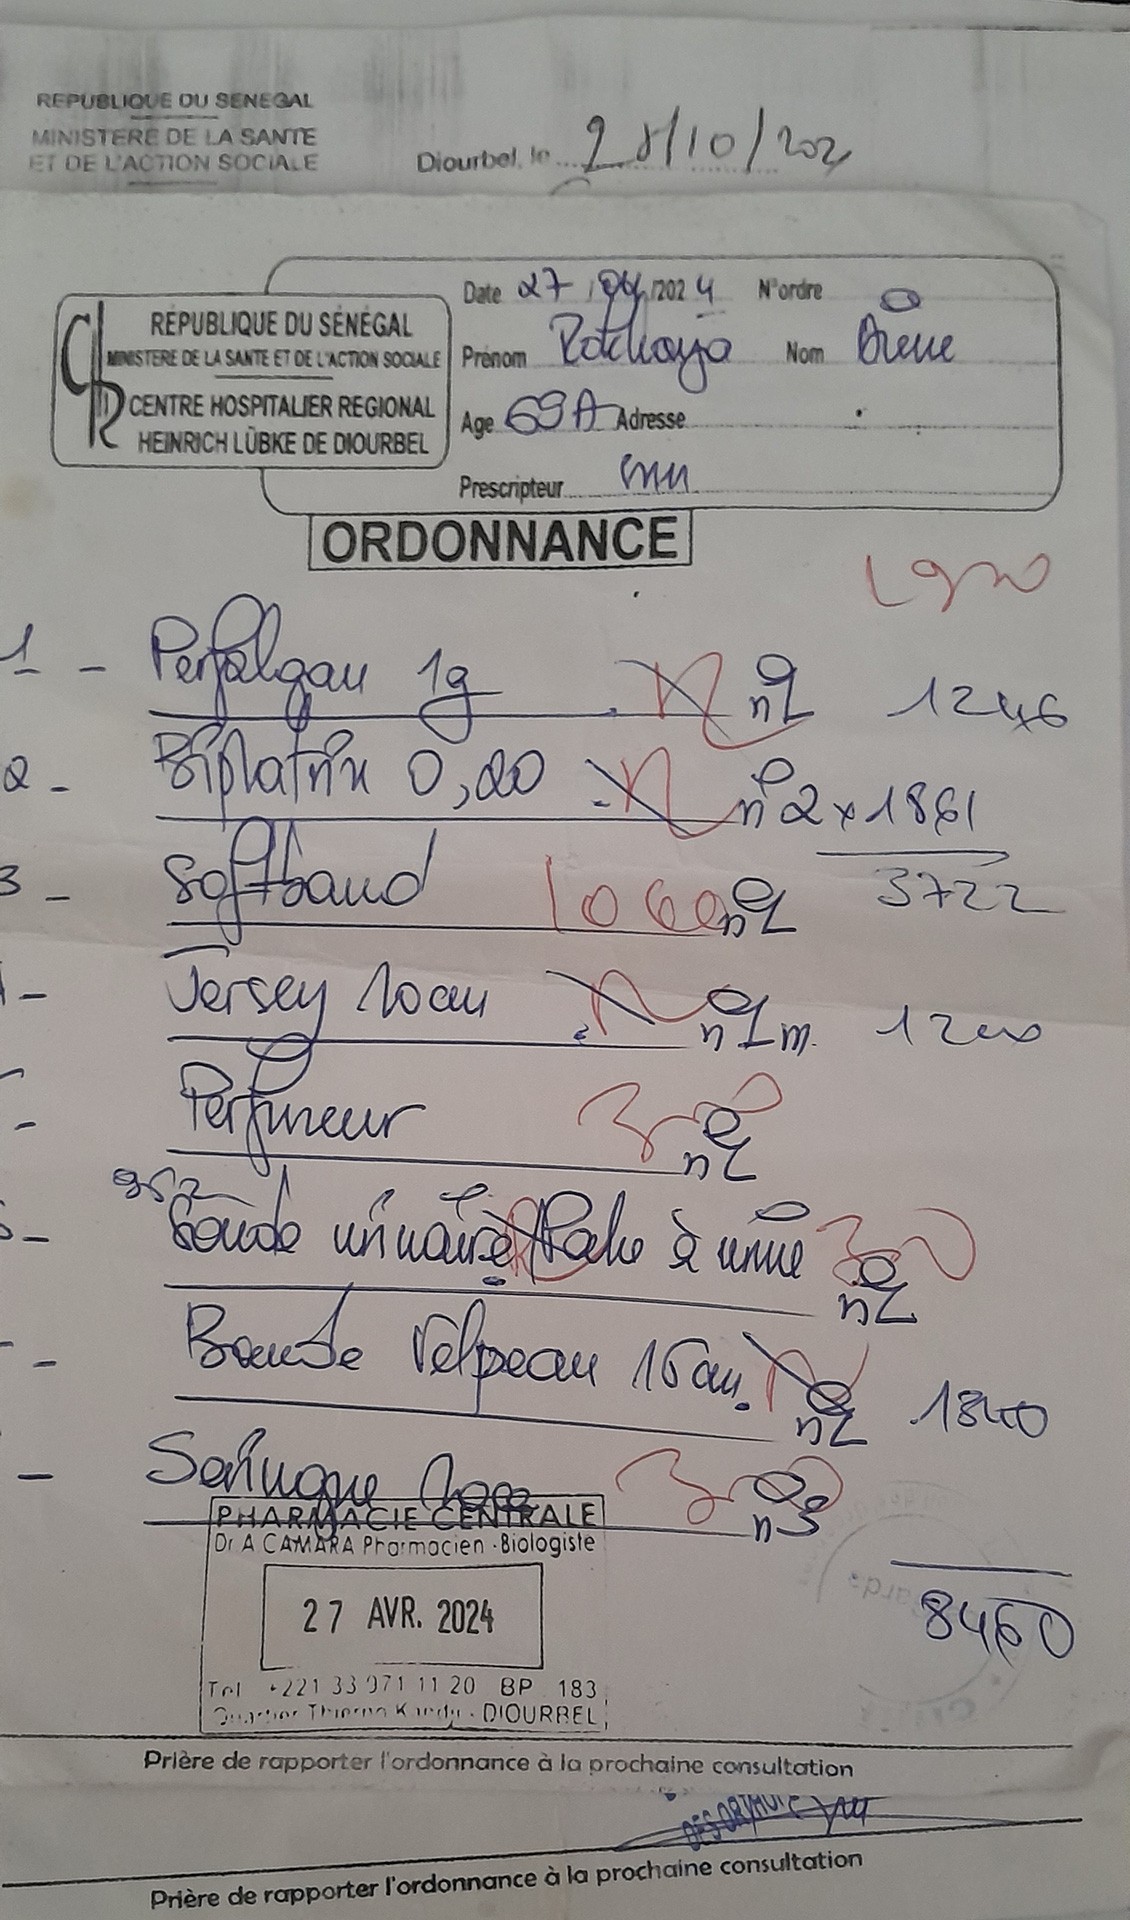 REPUBLIQUE DU SENEGAL
MINISTERE DE LA SANTE
ET DE L'ACTION SOCIALE
Diourbel, le 28/10/202
RÉPUBLIQUE DU SÉNÉGAL
MINISTERE DE LA SANTE ET DE L'ACTION SOCIALE
CENTRE HOSPITALIER REGIONAL
HEINRICH LÜBKE DE DIOURBEL
Date 27/04/2024 N°ordre
Prénom Nom Diene
Age 69A Adresse
Prescripteur
ORDONNANCE
1 - Perfalgan 1g n°1 1246
2 - Biplatrix 0,20 n°2 x 1861
3722
3 - Softband 1060 n°1
Jersey 10cm n°1m. 1200
Perfuseur n°1
Sonde urinaire/Poche à urine n°1
Bande Velpeau 15cm. n°1 1840
Seringue 10cc n°3
8460
PHARMACIE CENTRALE
Dr A CAMARA Pharmacien - Biologiste
27 AVR. 2024
Tel +221 33 971 11 20 BP 183
Quartier DIOURBEL
Prière de rapporter l'ordonnance à la prochaine consultation
Prière de rapporter l'ordonnance à la prochaine consultation